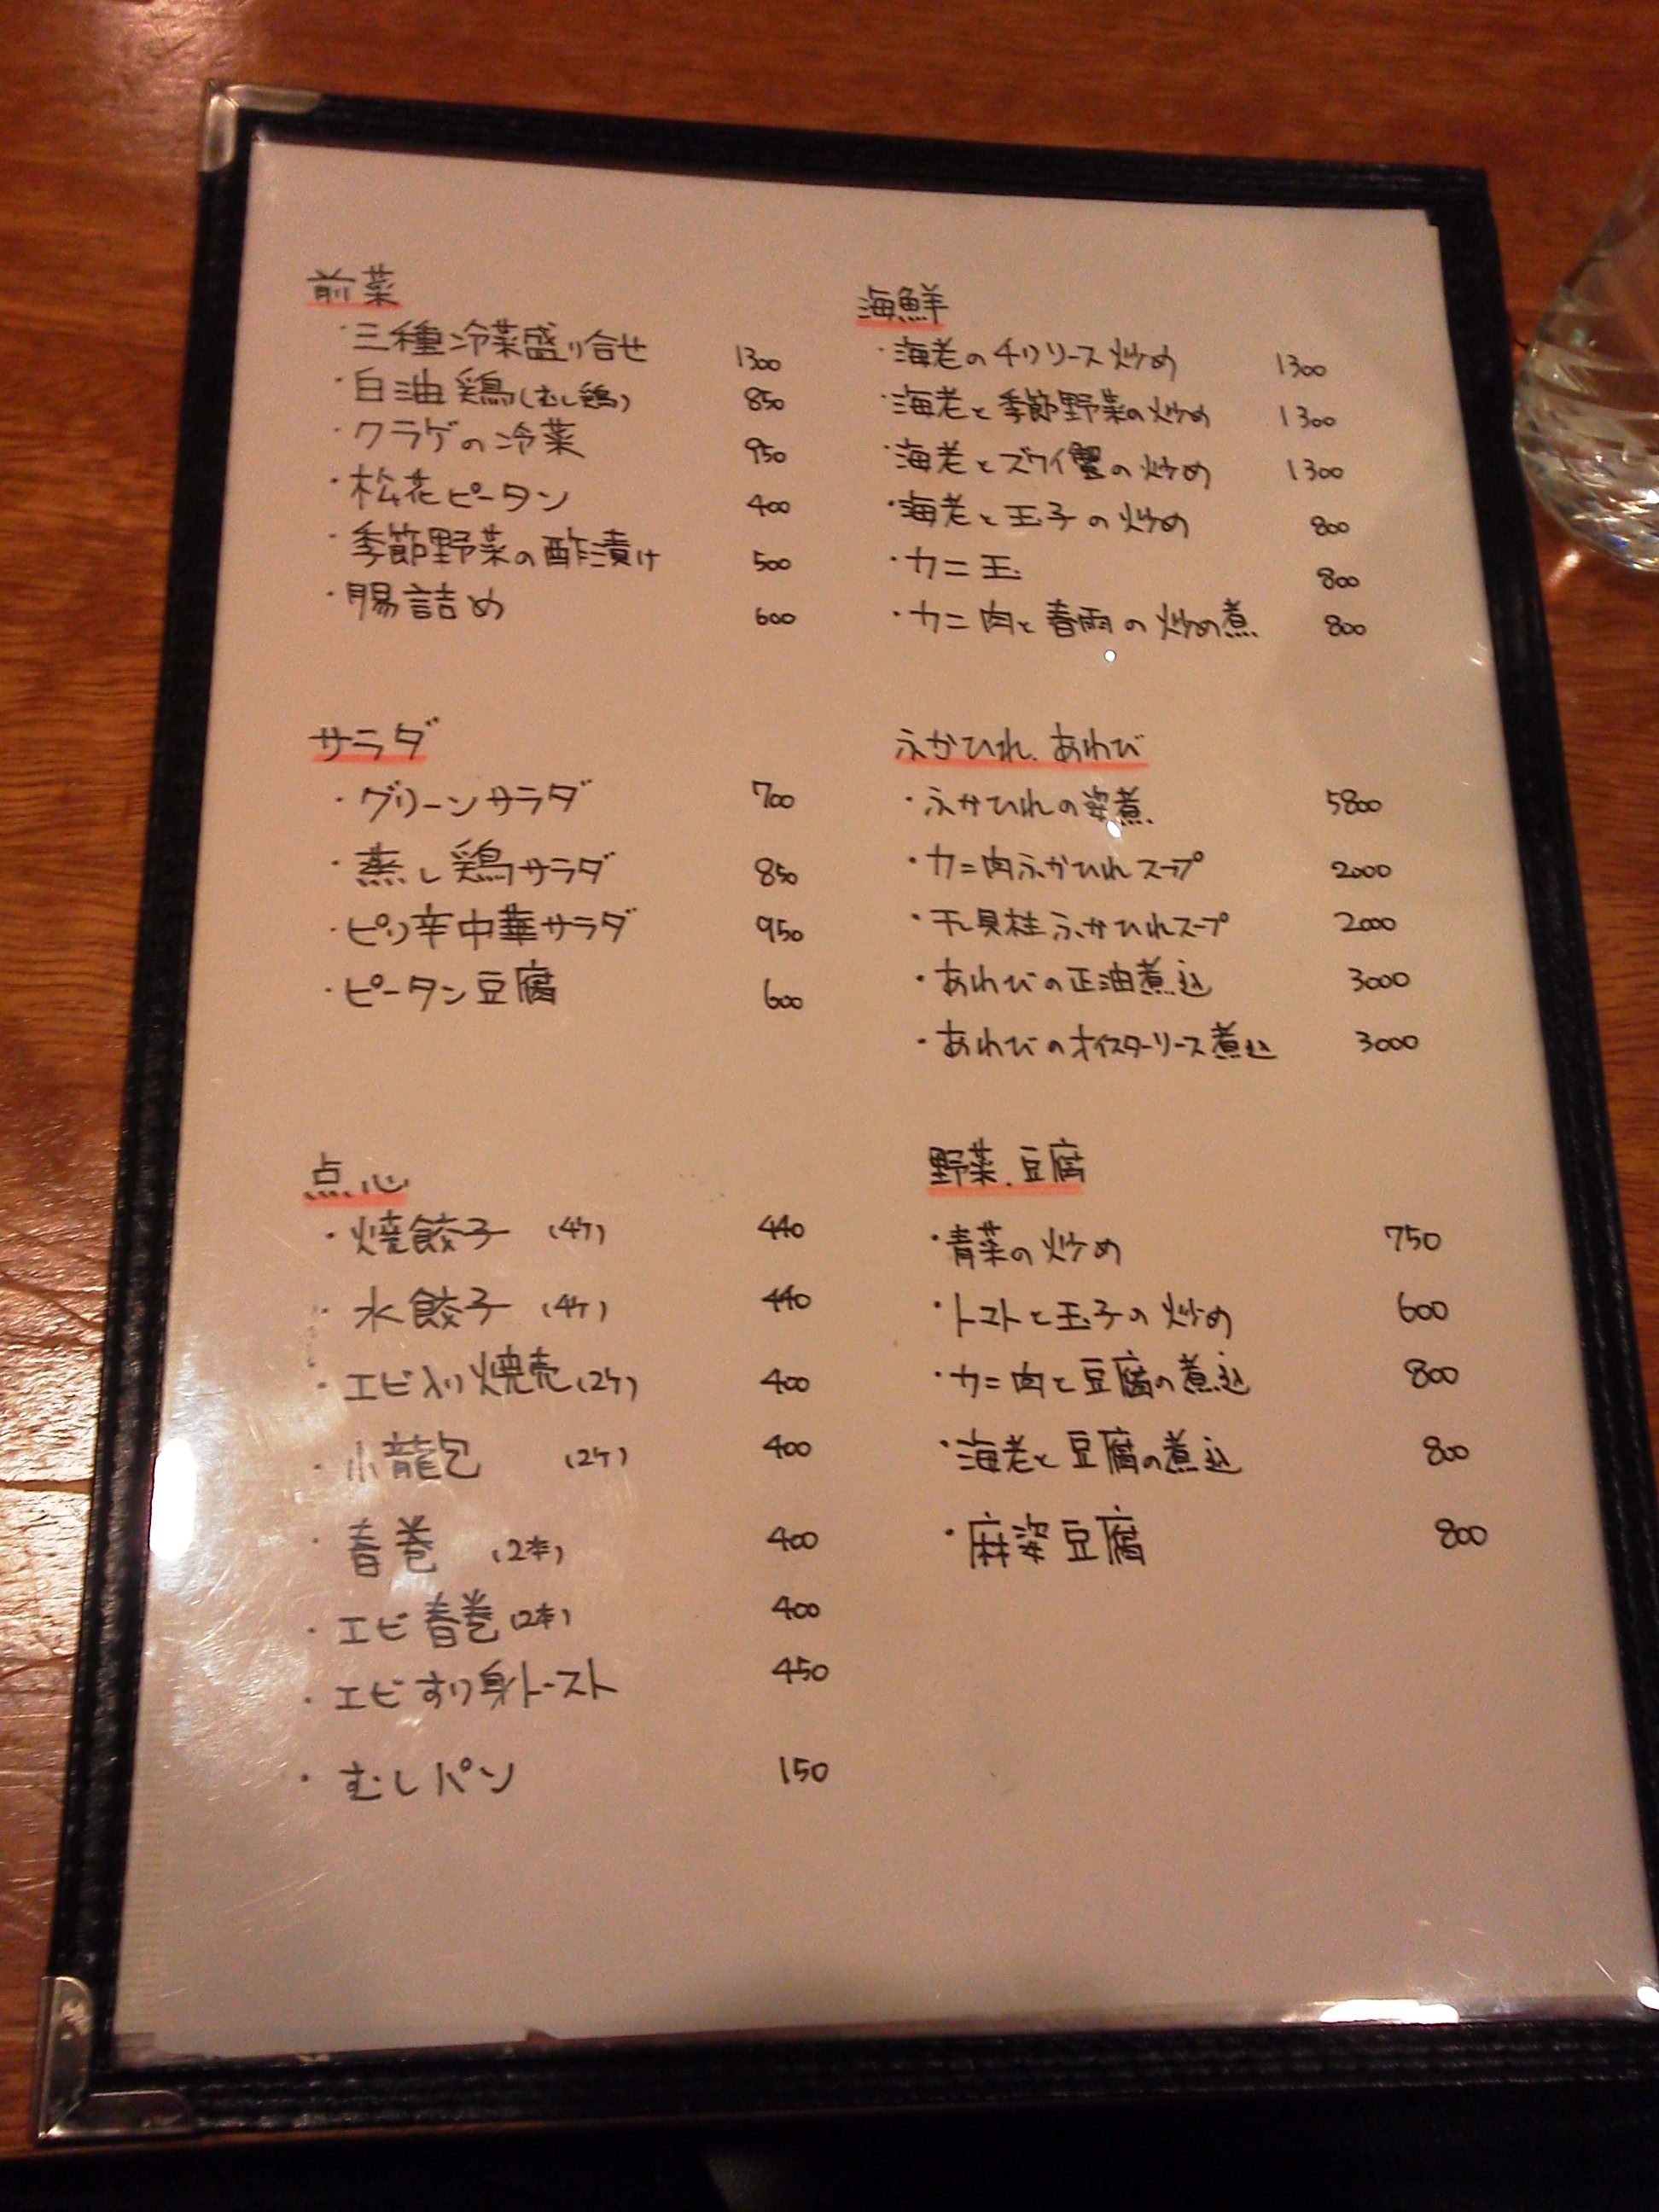 前菜
・三種冷菜盛り合せ 1300
・白油鶏(むし鶏) 850
・クラゲの冷菜 950
・松花ピータン 400
・季節野菜の酢漬け 500
・腸詰め 600
サラダ
・グリーンサラダ 700
・蒸し鶏サラダ 850
・ピリ辛中華サラダ 950
・ピータン豆腐 600
点心
・焼餃子 (4ケ) 440
・水餃子 (4ケ) 440
・エビ入り焼売(2ケ) 400
・小龍包 (2ケ) 400
・春巻 (2本) 400
・エビ春巻(2本) 400
・エビすり身トースト 450
・むしパン 150
海鮮
・海老のチリソース炒め 1300
・海老と季節野菜の炒め 1300
・海老とズワイ蟹の炒め 1300
・海老と玉子の炒め 800
・カニ玉 800
・カニ肉と春雨の炒め煮 800
ふかひれ、あわび
・ふかひれの姿煮 5800
・カニ肉ふかひれスープ 2000
・干貝柱ふかひれスープ 2000
・あわびの正油煮込 3000
・あわびのオイスターソース煮込 3000
野菜、豆腐
・青菜の炒め 750
・トマトと玉子の炒め 600
・カニ肉と豆腐の煮込 800
・海老と豆腐の煮込 800
・麻婆豆腐 800